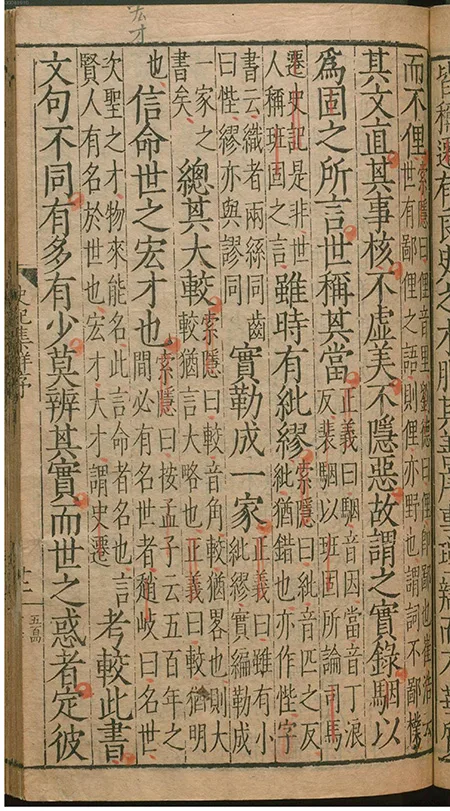 宏才
而不俚索隱曰俚音里劉德曰俚即鄙也崔浩云
世有鄙俚之語則俚亦野也謂詞不鄙樸
其文直其事核不虛美不隱惡故謂之實錄駰以
爲固之所言世稱其當正義曰駰音因當音丁浪
反裴駰以班固所論司馬
遷史記是非世
人稱班固之言
雖時有紕繆索隱曰紕音匹之反
紕猶錯也亦作悂字
書云織者兩絲同齒
曰悂繆亦與謬同
實勒成一家正義曰雖有小
紕繆實編勒成
一家之
書矣
總其大較索隱曰較音角較猶畧也則大
較猶言大略也正義曰較猶明
也信命世之宏才也索隱曰按孟子云五百年之
間必有名世者趙岐曰名世
次聖之才物來能名此言命者名也言
賢人有名於世也宏才大才謂史遷
考較此書
文句不同有多有少莫辨其實而世之惑者定彼
史記集解序